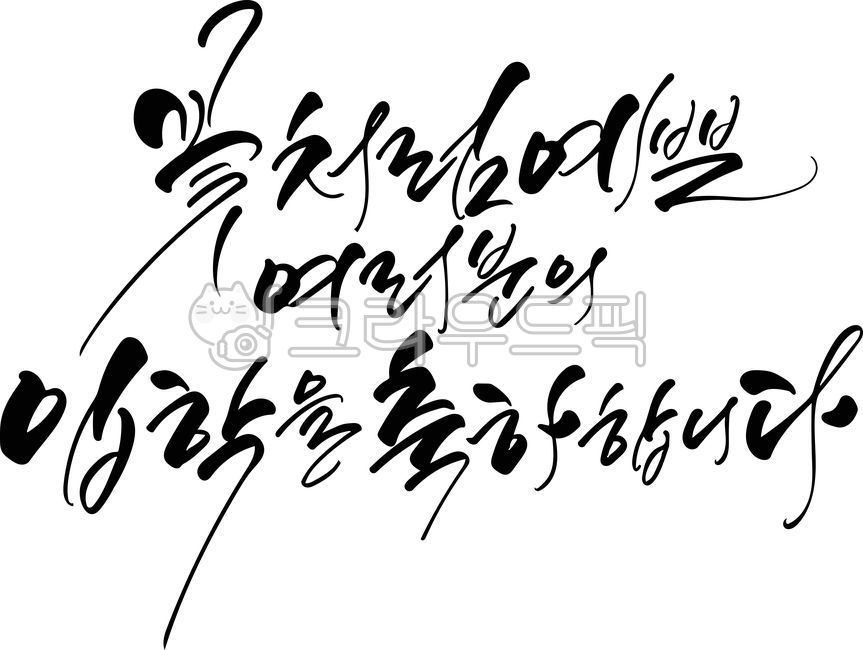 꽃처럼 예쁜
여러분의
크라우드픽
입학을 축하합니다